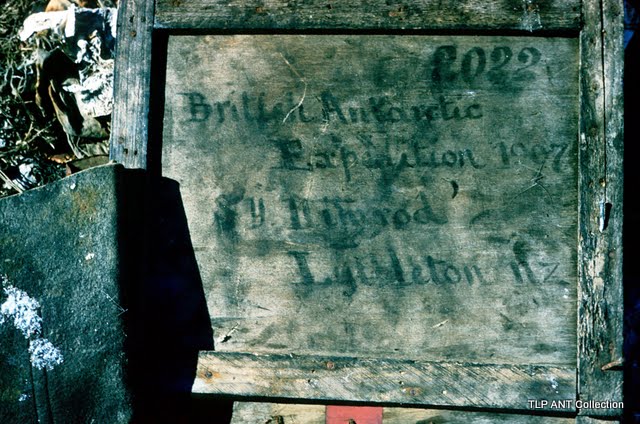 2022
British Antarctic
Expedition 1907
S.Y. Nimrod'
Lyttleton NZ
TLP ANT Collection